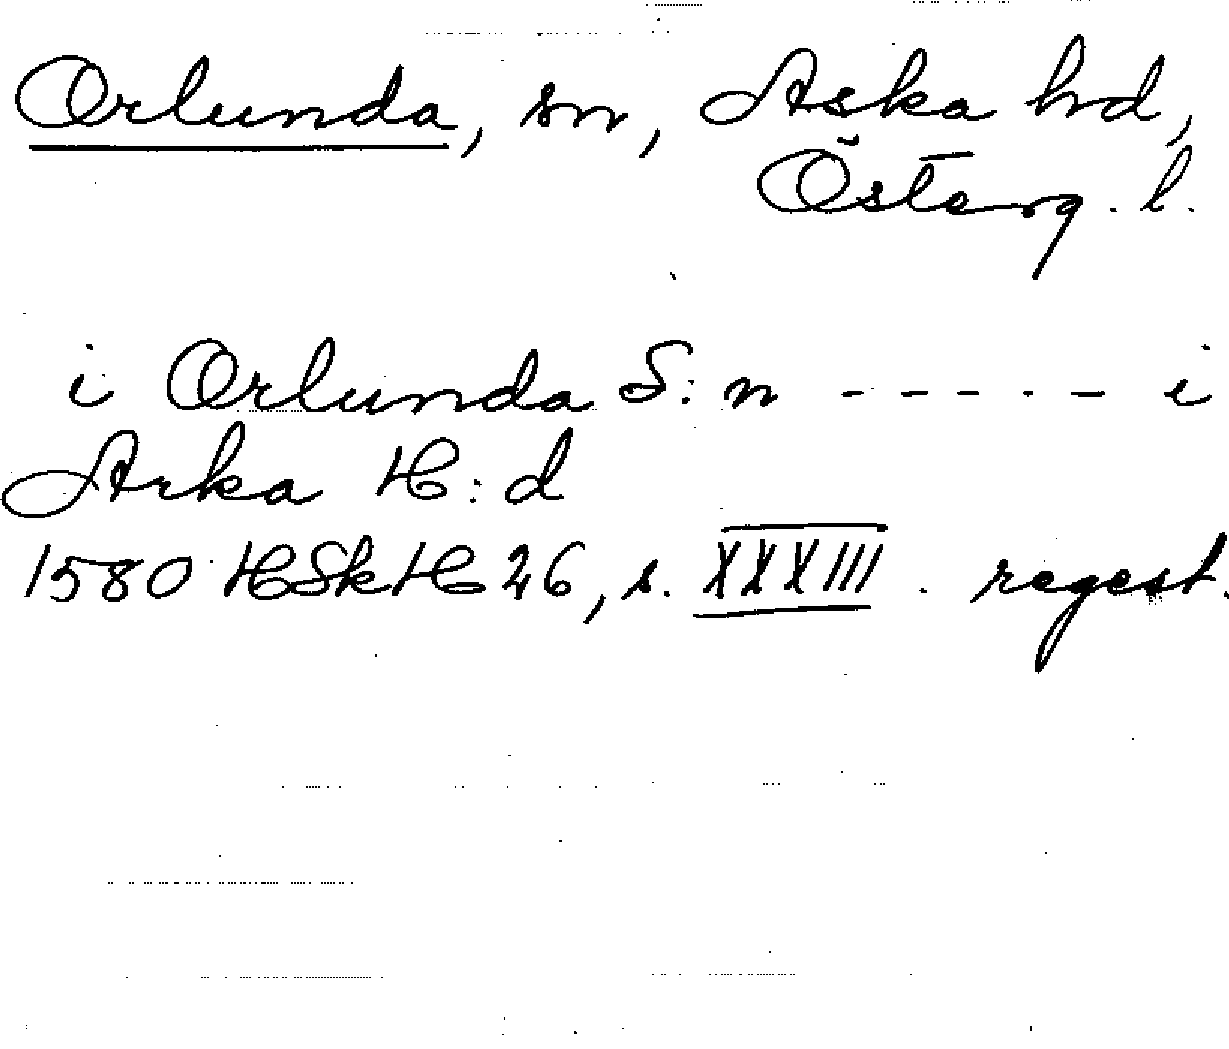 Orlunda, sn, Aska hd,
Österg. l.
i Orlunda S:n ----- i
Arka H:d
1580 HSkH 26, s. XXXIII. regest.